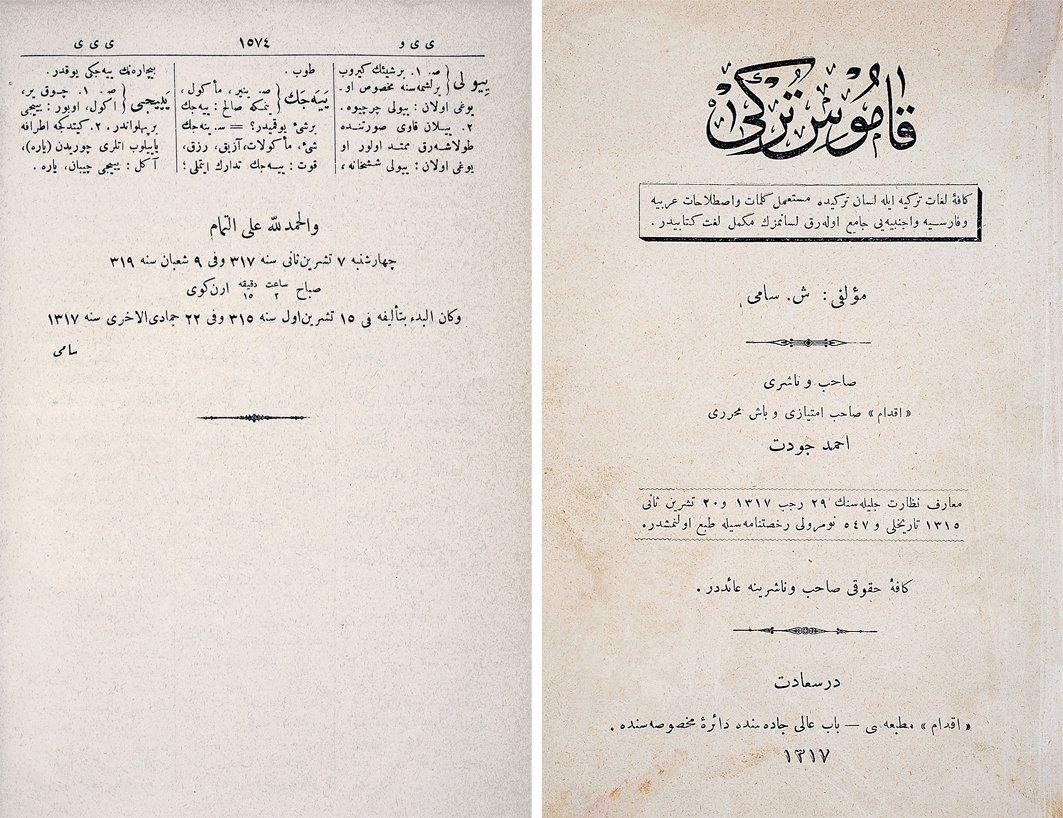 ی ی و
١٥٧٤
ی ی ی
ییولی { ص ١. برشیئك كیروب
برلشمه‌سنه مخصوص او.
یوغی اولان : ییولی چرچیوه.
٢. ییلان قاوی صورتنــده
طولاشه‌رق ممتد اولور او
یوغی اولان : ییولی ششخانه ،
طوپ .
ییه‌جك { ص. ینیر، مأكول،
ینمكه صالح : ییه‌جك
برشی یوقمیدر؟ = س. ینه‌جك
شیٔ، مأكولات، آزیق، رزق،
قوت : ییــه‌جك تدارك ایتملی ؛
بیچاره‌نك ییه‌جكی یوقدر .
ییجی { ص ١. چــوق یر،
اكول، اوبور : ییجی
بر پهلواندر. ٢. كیتدكجه اطرافه
یاییلوب اتلری چوریدن (یاره)،
آكل : ییجی چیبان، یاره .
والحمد لله علی التمام
چهارشنبه ٧ تشرین ثانی سنه ٣١٧ وفی ٩ شعبان سنه ٣١٩
صباح ساعت ٢ دقیقه ١٥ ارن كوی
وكان البدء بتألیفه فی ١٥ تشرین اول سنه ٣١٥ وفی ٢٢ جمادی الاخری سنه ١٣١٧
سامی
قاموس تركی
كافۀ لغات تركیه ایله لسان تركیده مستعمل كلمات واصطلاحات عربیه
وفارسـیه واجنبیه‌یی جامع اوله‌رق لسانمزك مكمل لغت كتابیدر .
مؤلفی : ش. سامی
صاحب و ناشری
« اقدام » صاحب امتیازی و باش محرری
احمد جودت
معارف نظارت جلیله‌سنك ٢٩ رجب ١٣١٧ و٢٠ تشرین ثانی
١٣١٥ تاریخلی و ٥٤٧ نومرولی رخصتنامه‌سیله طبع اولنمشدر.
كافۀ حقوقی صاحب وناشرینه عائددر .
درسعادت
« اقدام » مطبعه‌سی — باب عالی جاده‌سنده دائرۀ مخصوصه‌سنده .
١٣١٧